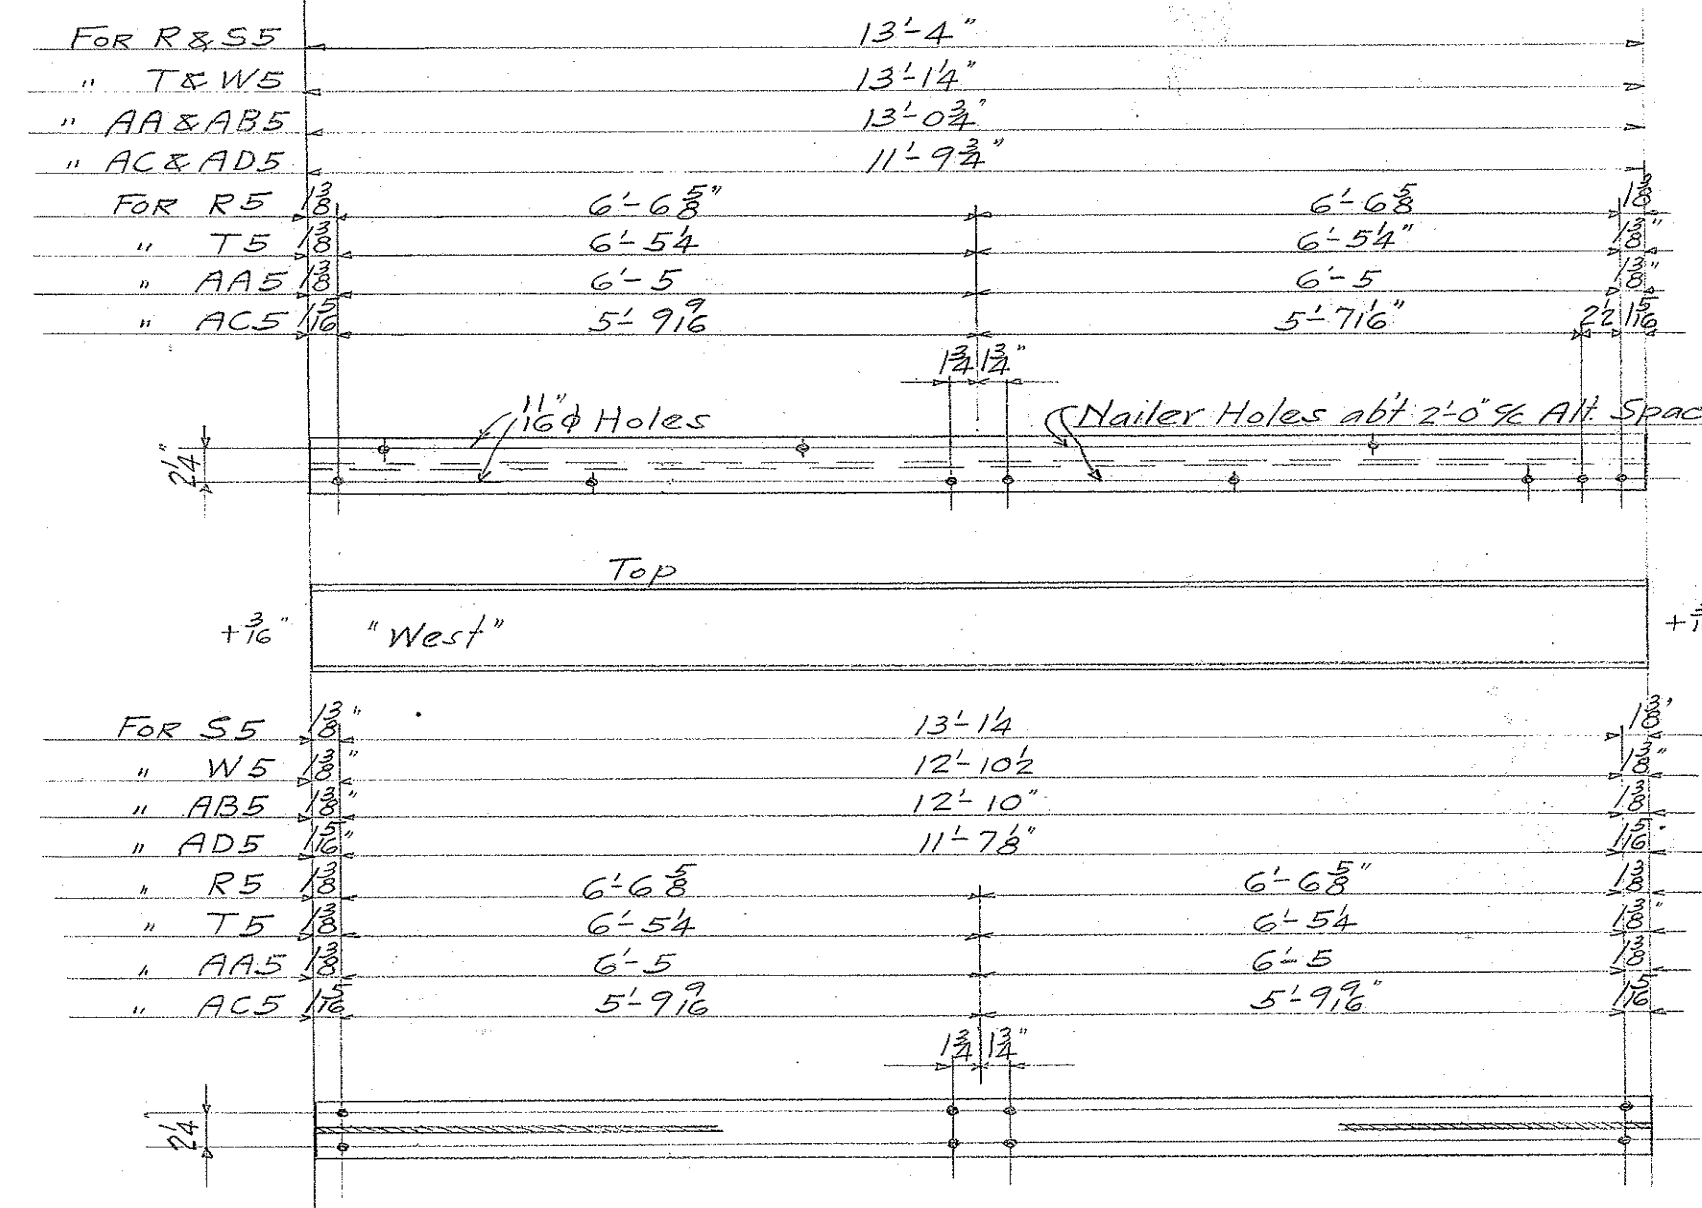 FOR R & S5 13'-4"
" T & W5 13'-1 1/4"
" AA & AB5 13'-0 3/4"
" AC & AD5 11'-9 3/4"
FOR R5 1 3/8 6'-6 5/8" 6'-6 5/8 1 3/8
" T5 1 3/8 6'-5 1/4 6'-5 1/4" 1 3/8"
" AA5 1 3/8 6'-5 6'-5 1 3/8"
" AC5 1 5/16 5'-9 9/16 5'-7 1/16" 2 1/2 1 5/16
1 3/4 1 3/4"
11/16" φ Holes Nailer Holes abt 2'-0" c/c Alt. Spac
2 1/4"
Top
+ 3/16" "West"
FOR S5 1 3/8" 13'-1 1/4 1 3/8"
" W5 1 3/8" 12'-10 1/2 1 3/8"
" AB5 1 3/8" 12'-10" 1 3/8
" AD5 1 5/16" 11'-7 1/8" 1 5/16"
" R5 1 3/8 6'-6 5/8 6'-6 5/8" 1 3/8
" T5 1 3/8 6'-5 1/4 6'-5 1/4 1 3/8"
" AA5 1 3/8 6'-5 6'-5 1 3/8
" AC5 1 5/16 5'-9 9/16 5'-9 9/16" 1 5/16
1 3/4 1 3/4"
2 1/4